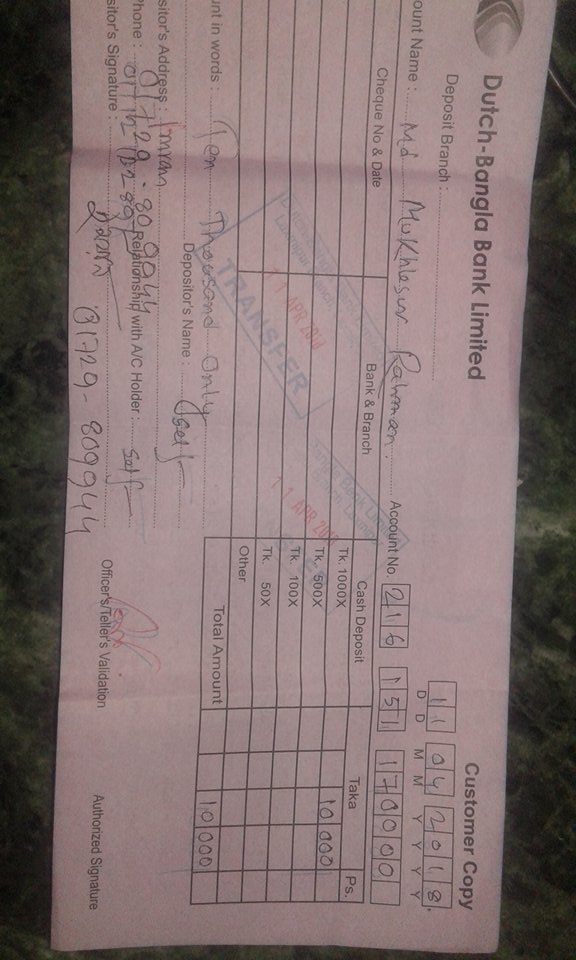 Dutch-Bangla Bank Limited
Customer Copy
Deposit Branch :
11 04 2018
D D M M Y Y Y Y
ount Name : Md Mukhlesur Rahman Account No. 216 151 170000
Cheque No & Date Bank & Branch Cash Deposit Taka Ps.
Tk. 1000X
Tk. 500X 10000
Tk. 100X
Tk. 50X
Other
Total Amount 10000
TRANSFER
11 APR 2018
11 APR 201
unt in words : Ten Thousand Only
Depositor's Name :
sitor's Address : Imran
Phone : 01729-809944 Relationship with A/C Holder : self
sitor's Signature : 01729-809944
Officer's/Teller's Validation
Authorized Signature